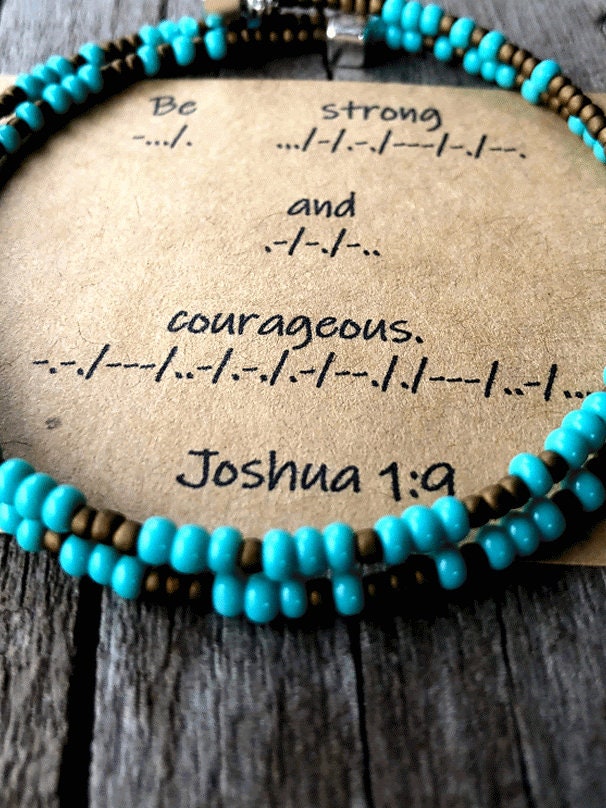 Be strong
-.../. .../-/.-./---/-./--.
and
.-/-./-..
courageous.
-.-./---/..-/.-./.-/--././---/..-/...
Joshua 1:9